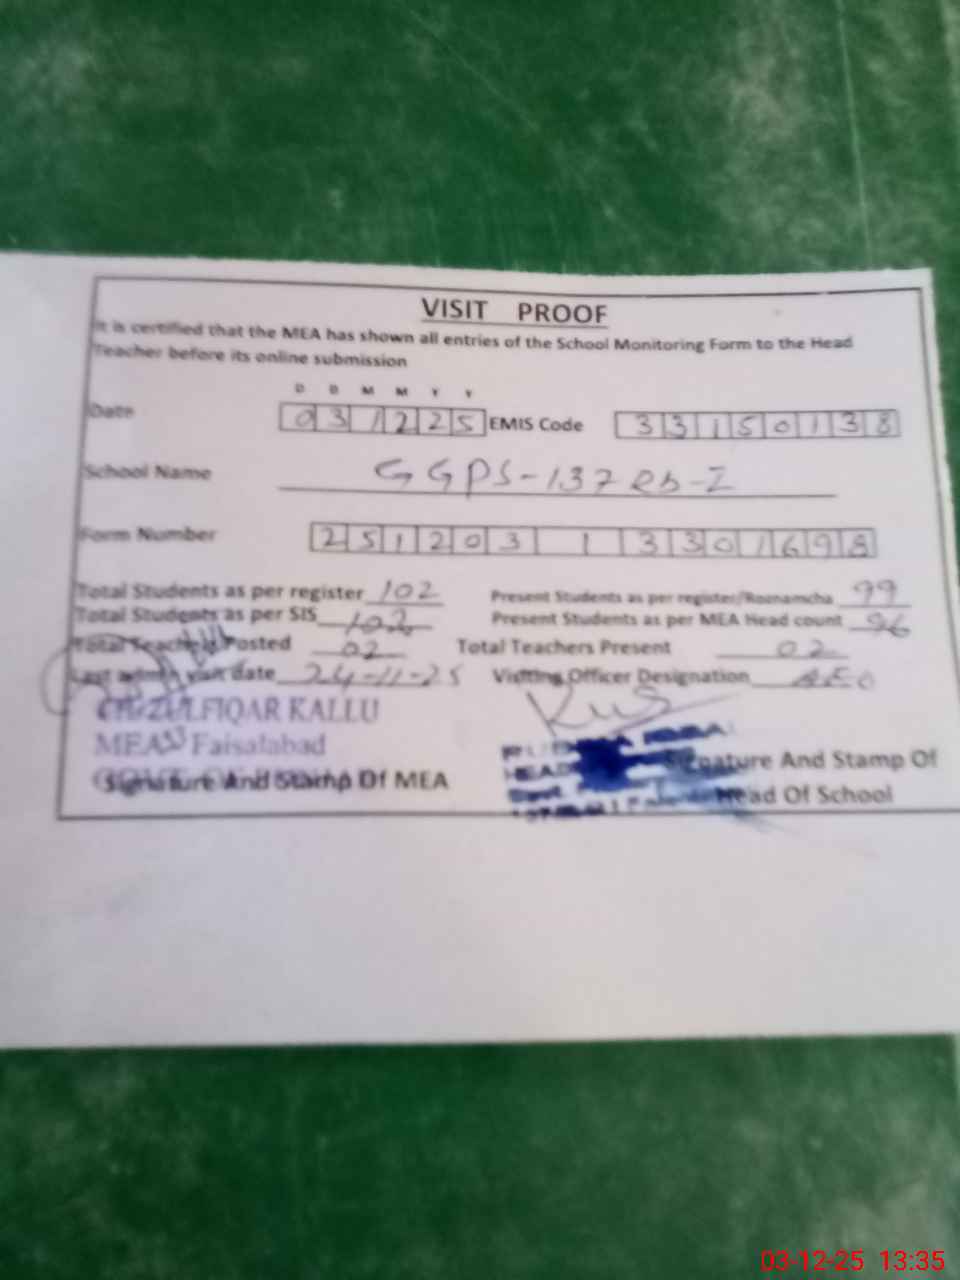 VISIT PROOF
It is certified that the MEA has shown all entries of the School Monitoring Form to the Head
Teacher before its online submission
D D M M Y Y
Date 031225 EMIS Code 33150138
School Name GGPS-137 RB-I
Form Number 251203 1 3301698
Total Students as per register 102 Present Students as per register/Roznamcha 99
Total Students as per SIS 102 Present Students as per MEA Head count 96
Total Teachers Posted 02 Total Teachers Present 02
Last admin visit date 24-11-25 Visiting Officer Designation AEO
CH ZULFIQAR KALLU
MEA Faisalabad
Signature And Stamp Of MEA
HEAD
Signature And Stamp Of
Head Of School
03-12-25 13:35